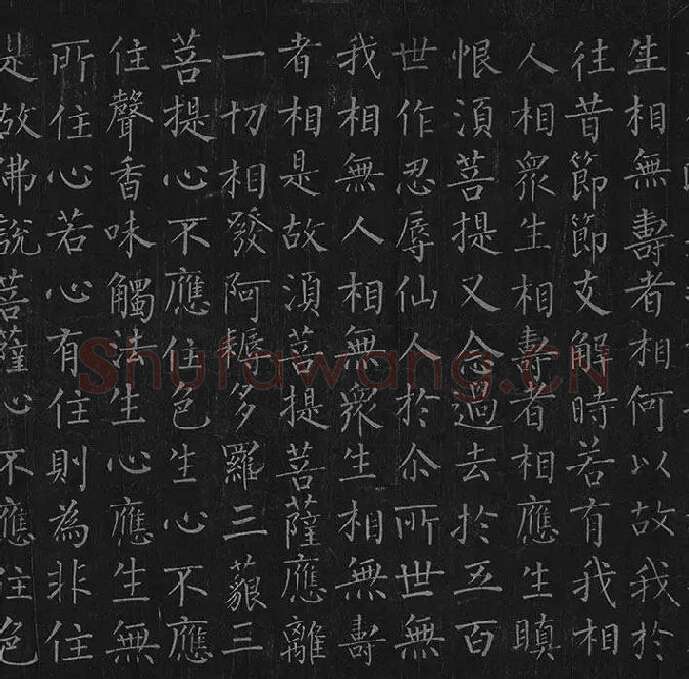 生相無壽者相何以故我於
往昔節節支解時若有我相
人相眾生相壽者相應生瞋
恨須菩提又念過去於五百
世作忍辱仙人於尒所世無
我相無人相無眾生相無壽
者相是故須菩提菩薩應離
一切相發阿耨多羅三藐三
菩提心不應住色生心不應
住聲香味觸法生心應生無
所住心若心有住則為非住
是故佛說菩薩心不應住色
Shufawang.CN